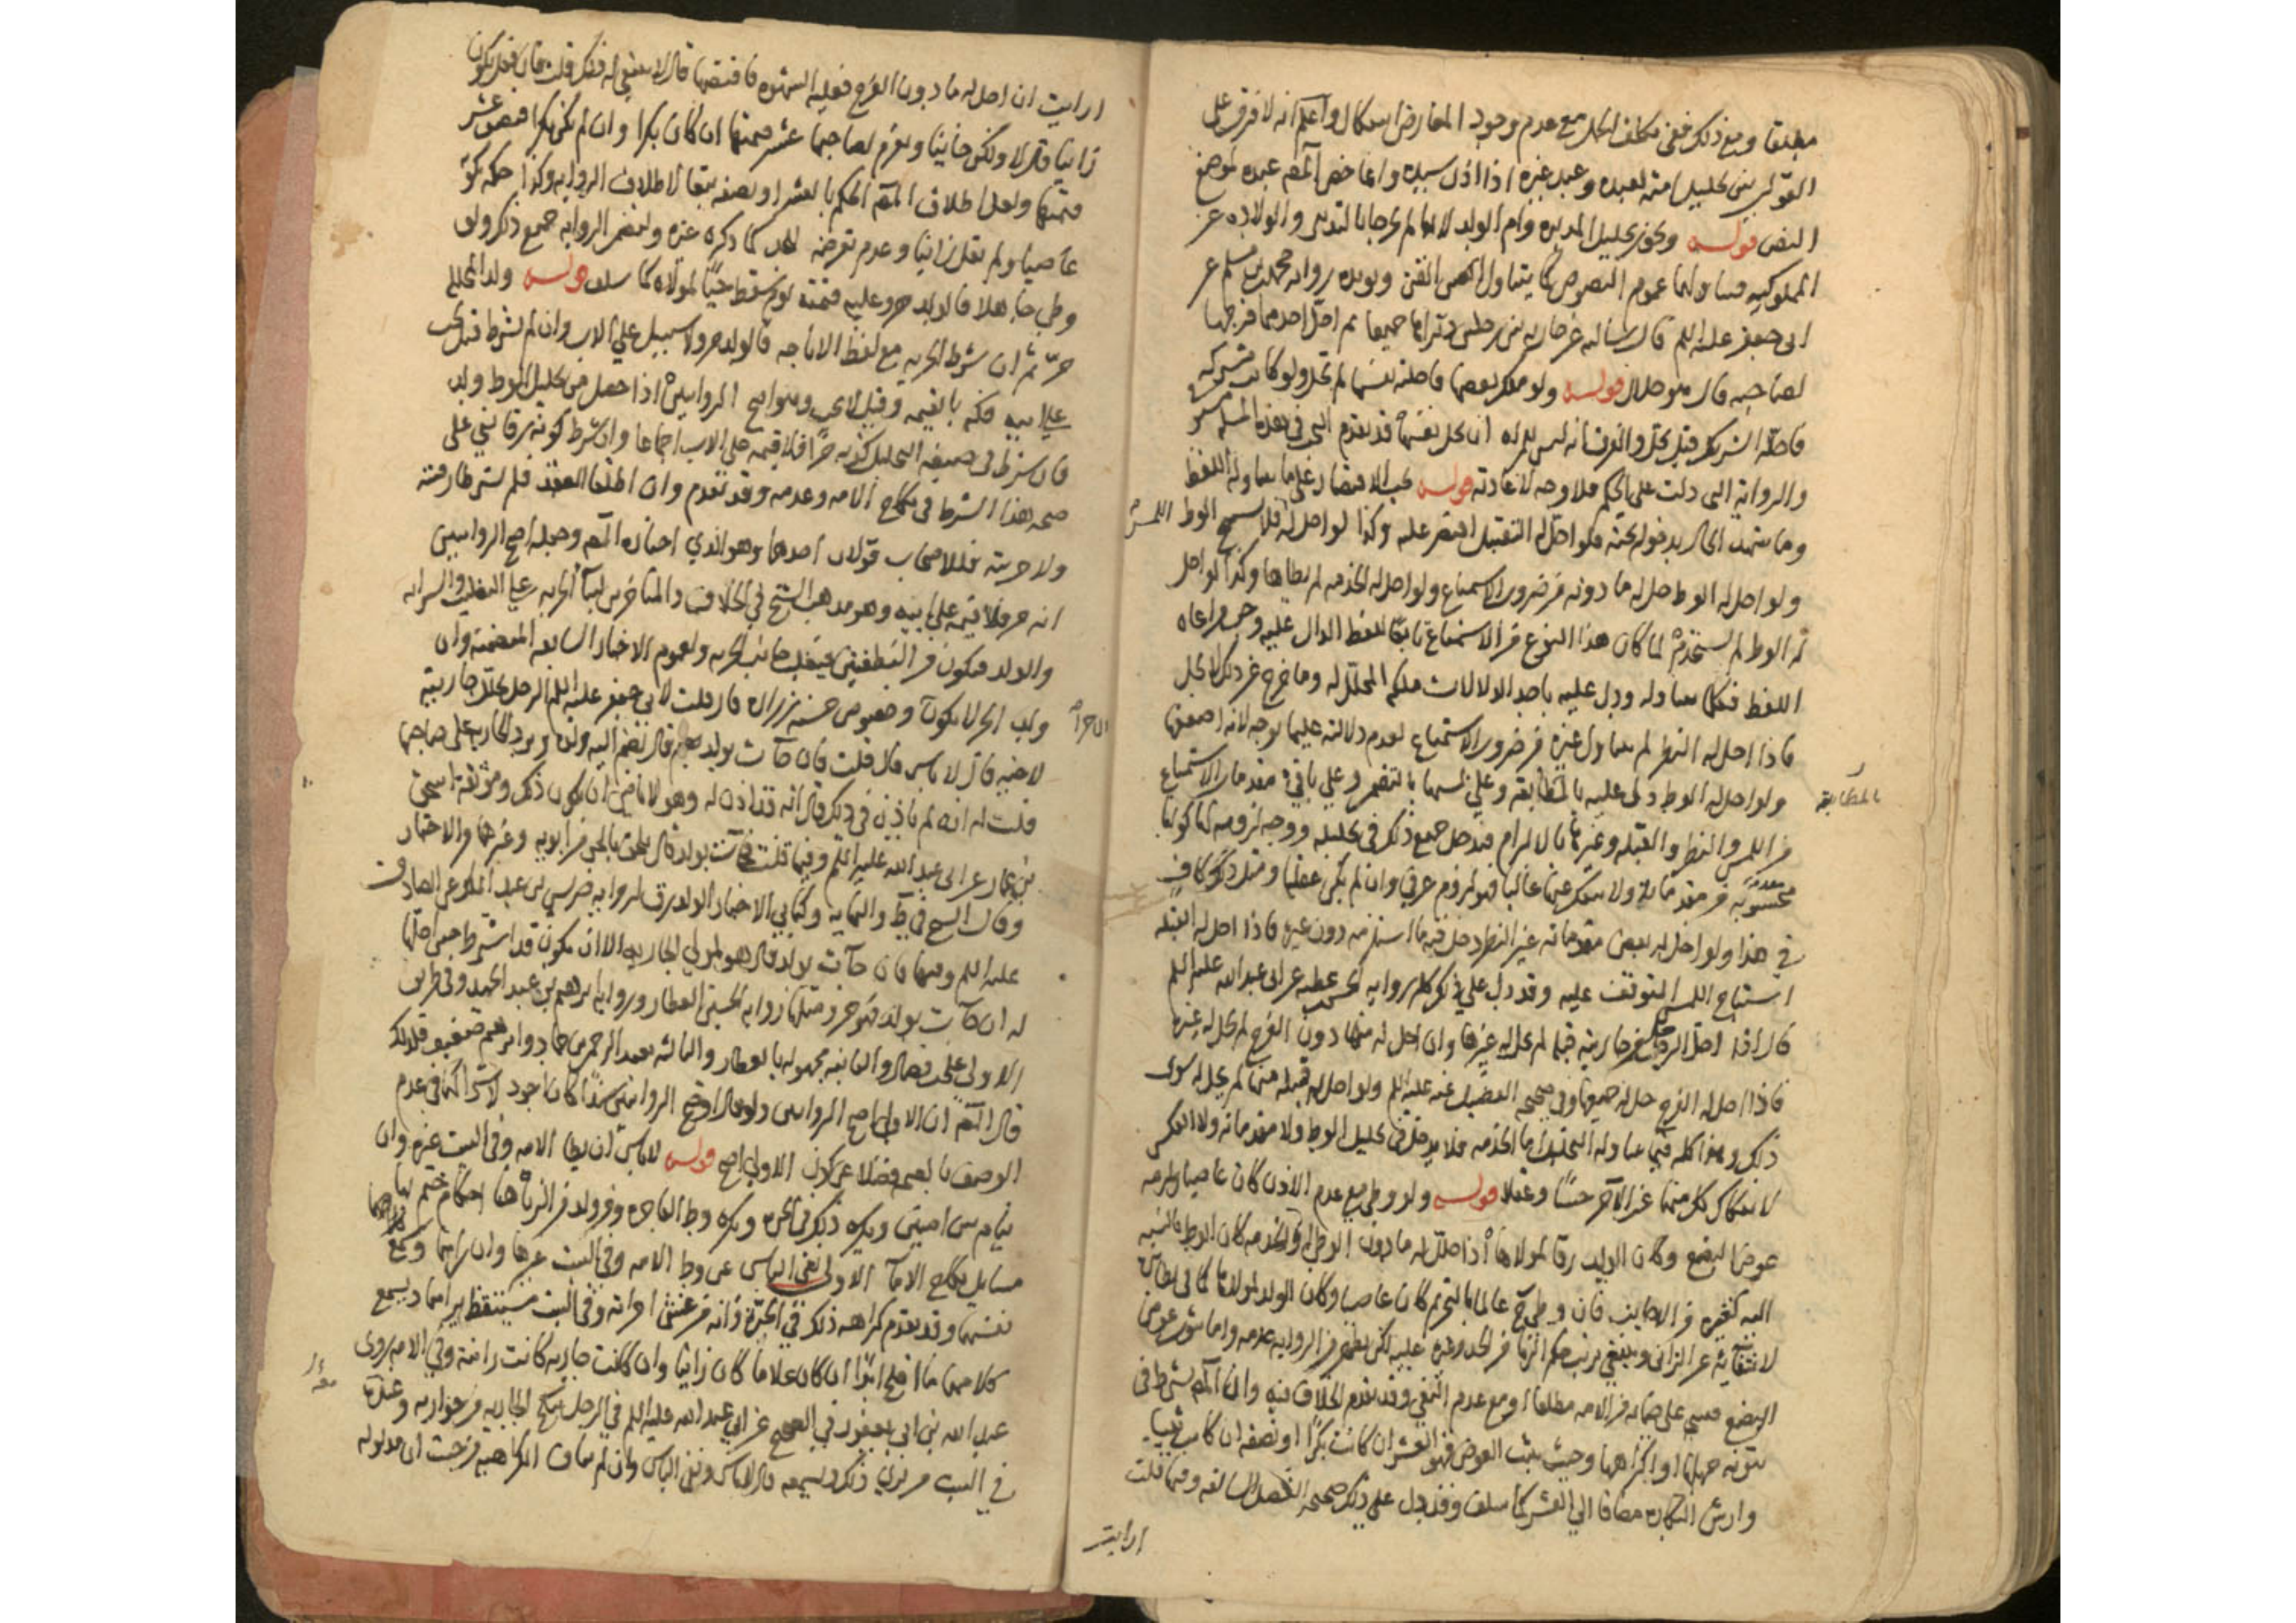 مطلقا ومع ذلك ففي مكلف الحل مع عدم وجود المعارض اشكال واعلم انه لا فرق على
القولين بين تحليل امته لعبده وعبد غيره اذا اذن سيده وانما خص المصـ عبده لموضع
النص قوله ويجوز تحليل المدبره وام الولد لانهما لم يخرجا بالتدبير والولاده عن
المملوكيه فيتناولهما عموم النصوص كما يتناول القن ويؤيده روايه محمد بن مسلم عن
ابى جعفر عليه السلم قال سالته عن جاريه بين رجلين دبراها جميعا ثم احل احدهما فرجها
لصاحبه قال هو حلال قوله ولو ملك بعضها فاحلته نفسها لم تحل ولو كانت مشتركه
فاحلها الشريك قيل تحل والفرق انه ليس للمراه ان تحل نفسها قد تقدم البحث في هذه المسله
والروايه التى دلت على الحكم فلا وجه لاعادته قوله يجب الاقتصار على ما تناوله اللفظ
وما شهد الحال بدخوله تحته فلو احل له التقبيل اقتصر عليه وكذا لو احل له فلا يستبيح الوطء اللمس
ولو احل له الوطء حل له ما دونه من ضروب الاستمتاع ولو احل له الخدمه لم يطاها وكذا لو احل
له الوطء لم يستخدم لما كان هذا النوع من الاستمتاع تابعا للفظ الدال عليه وجب مراعاه
اللفظ فكلما تناوله ودل عليه باحد الدلالات ملكه المحلل له وما خرج عن ذلك لا يحل
فاذا احل له النظر لم يتناول غيره من ضروب الاستمتاع لعدم دلالته عليها بوجه لانه اضعفها
ولو احل له الوطء دل عليه بالمطابقه وعلى لمسها بالتضمن وعلى باقي مقدمات الاستمتاع
من اللمس والنظر والقبله وغيرها بالالتزام فيدخل جميع ذلك في تحليله ووجه لزومه لها كونها
معدوده من مقدماته ولا ينفك عنها غالبا فهو لزوم عرفي وان لم يكن عقليا ومثل ذلك كاف
في هذا ولو احل له بعض مقدماته غير النظر دخل فيه ما استلزمه دون غيره فاذا احل له القبله
استباح اللمس المتوقف عليه وقد دل على ذلك كله روايه الحسن بن عطيه عن ابى عبد الله عليه السلم
قال اذا احل الرجل من جاريته قبله لم يحل له غيرها وان احل له منها دون الفرج لم يحل له غيره
فاذا احل له الفرج حل له جميعها وفي صحيحه الفضيل عنه عليه السلم ولو احل له قبله منها لم يحل له سوى
ذلك وهذا كله فيما تناوله التحليل اما الخدمه فلا يدخل في تحليل الوطء ولا مقدماته ولا العكس
لانفكاك كل منهما عن الاخر حسا وعقلا قوله ولو وطي مع عدم الاذن كان عاصيا ولزمه
عوض البضع وكان الولد رقا لمولاها اذا حلل له ما دون الوطء او الخدمه كان الوطء بالنسبه
اليه كغيره من الاجانب فان وطي ح عالما بالتحريم كان عاصيا وكان الولد لمولاها كما في نظائره
لانتفائه عن الزانى وينبغي ترتب حكم الزنا من الحد وغيره عليه لكن يظهر من الروايه عدمه واما ثبوت عوض
البضع فمبنى على ضمانه من الامه مطلقا او مع عدم البغي وقد تقدم الخلاف فيه وان المصـ شرط في
ثبوته جهلها او اكراهها وحيث يثبت العوض فهو العشر ان كانت بكرا او نصفه ان كانت ثيبا
وارش البكاره مضافا الى العشر كما سلف وقد دل على ذلك صحيحه الفضيل السالفه وفيها قلت
ارايت
بالمطابقه
ارايت ان احل له ما دون الفرج فغلبته الشهوه فافتضها قال لا ينبغي له ذلك قلت فان فعل يكون
زانيا قال لا ولكن خاينا ويغرم لصاحبها عشر قيمتها ان كان بكرا وان لم تكن بكرا فنصف عشر
قيمتها ولعل اطلاق المصـ الحكم بالعشر او نصفه تبعا لاطلاق الروايه وكذا حكمه بكونه
عاصيا ولم يقل زانيا وعدم تعرضه للحد كما ذكره غيره وليضمن الروايه جميع ذلك ولو
وطي جاهلا فالولد حر وعليه قيمته يوم سقط حيا لمولاه كما سلف قوله ولد المحلله
حر ثم ان شرط الحريه مع لفظ الاباحه فالولد حر ولا سبيل على الاب وان لم يشترط قيل يجب
على ابيه فكه بالقيمه وقيل لا يجب وهو اصح الروايتين اذا حصل من تحليل الوطء ولد
فان شرط في صيغه التحليل كونه حرا فلا قيمه على الاب اجماعا وان شرط كونه رقا بني على
صحه هذا الشرط في نكاح الامه وعدمه وقد تقدم وان اطلقا العقد فلم يشترطا رقيته
ولا حريته فللاصحاب قولان احدهما وهو الذي اختاره المصـ وجعله اصح الروايتين
انه حر فلا قيمه على ابيه وهو مذهب الشيخ في الخلاف والمتاخرين لبناء الحريه على التغليب والسرايه
والولد متكون من النطفتين فيغلب جانب الحريه ولعموم الاخبار السابقه المتضمنه وان
ولد الحر لا يكون الا حرا وخصوص حسنه زراره قال قلت لابى جعفر عليه السلم الرجل يحل جاريته
لاخيه قال لا باس قال قلت فان جآت بولد قال يضم اليه ولده ويرد الجاريه على صاحبها
قلت له انه لم ياذن في ذلك قال انه قد اذن له وهو لا يامن ان يكون ذلك وموثقه اسحق
بن عمار عن ابى عبد الله عليه السلم وفيها قلت فجآت بولد قال يلحق بالحر من ابويه وغيرها والاختيار
وقال الشيخ في ط والنهايه وكتابي الاخبار الولد رق لروايه ضريس بن عبد الملك عن الصادق
عليه السلم وفيها فان جآت بولد قال هو لمولى الجاريه الا ان يكون قد اشترط حين احلها
له ان جآت بولد فهو حر ومثلها روايه الحسين العطار وروايه ابرهيم بن عبد الحميد وفي طريق
الاولى على بن فضال والثانيه مجهوله بالعطار والثالثه بعبد الرحمن بن حماد وابرهيم ضعيف فلذلك
قال المصـ ان الاولى اصح الروايتين ولو قال اوضح الروايتين سندا كان اجود لاشتراكهما في عدم
الوصف بالصحه فضلا عن كون الاولى اصح قوله لا باس ان يطا الامه وفي البيت غيره وان
ينام بين امتين ويكره ذلك في الحره ويكره وطء الفاجره ومن ولد من الزنا هنا احكام ختم بها
مسايل نكاح الاماء الاولى نفى الباس عن وطء الامه وفي البيت غيرها وان راهما وسمع
نفسهما وقد تقدم كراهه ذلك في الحره وانه من غشى امراته وفي البيت مستيقظ يراهما ويسمع
كلامهما ما افلح ابدا ان كان غلاما كان زانيا وان كانت جاريه كانت زانيه وفي الامه روى
عبد الله بن ابى يعفور في الصحيح عن ابى عبد الله عليه السلم في الرجل ينكح الجاريه من جواريه وعنده
في البيت من يرى ذلك ويسمعه قال لا باس ونفى الباس وان لم يناف الكراهيه من حيث ان مدلوله
الا حرا